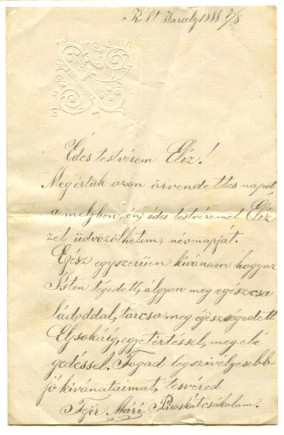 Kelt Károly 1888 7/8
Édes testvérem Eliz!
Megérték azon örvendettes napot
a melyben, én, édes testvéremet Eliz
zel üdvözölhetem, névnapját.
Egész egyszerűen kívánom hogy az
Isten tégedett, álgyon meg egész csa
ládoddal, tarcsa meg egészségedett
Élj soká íg, egyetértéssel, meg elé
gedéssel. Fogad legszívélyesebb
jó kívánataimat, tesvéred
Fejér Mári Piroskát csókolom.